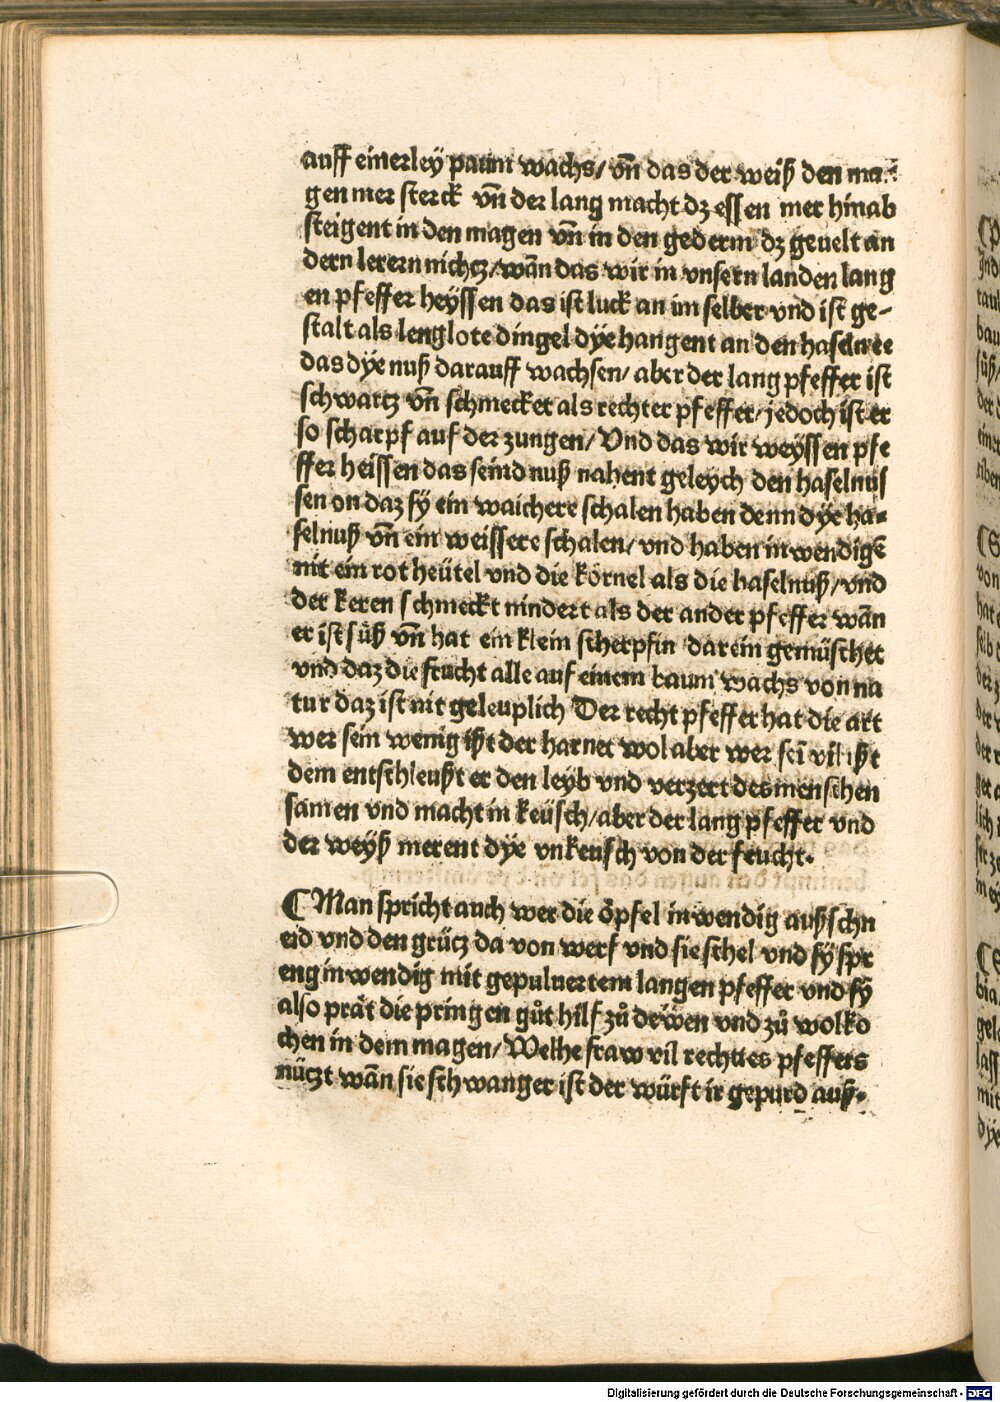 auff einerley paum wachs/ vñ das der weiß den ma⸗
gen mer sterck vñ der lang macht dz essen mer hinab
steigent in den magen vñ in den gederm dz geuelt an
dern lerern nichcz/ wãn das wir in vnsern landen lang
en pfeffer heÿssen das ist luck an im selber vnd ist ge⸗
stalt als lenglote dingel dÿe hangent an den haseln ee
das dÿe nuß darauff wachsen/ aber der lang pfeffer ist
schwartz vñ schmecket als rechter pfeffer/ jedoch ist er
so scharpf auf der zungen/ Vnd das wir weÿssen pfe
ffer heissen das seind nuß nahent geleych den haselnus
sen on daz sÿ ein waichere schalen haben denn dÿe ha⸗
selnuß vñ ein weissere schalen/ vnd haben inwendigẽ
nit ein rot heütel vnd die kórnel als die haselnuß/ vnd
der keren schmeckt nindert als der ander pfeffer wãn
er ist süß vñ hat ein klein scherpfin darein gemüschet
vnd daz die frucht alle auf einem baum wachs von na
tur daz ist nit geleuplich Der recht pfeffer hat die art
wer sein wenig ißt der harnet wol aber wer seĩ vil ißt
dem entschleußt er den leyb vnd verzert des menschen
samen vnd macht in keüsch/ aber der lang pfeffer vnd
der weyß merent dÿe vnkeusch von der frucht.
¶ Man spricht auch wer die ópfel inwendig außschn
eid vnd den grücz da von werf vnd sie schel vnd sÿ spr
eng inwendig mit gepuluertem langen pfeffer vnd sÿ
also prat die pringen gůt hilf zů dewen vnd zů wolko
chen in dem magen/ Welhe fraw vil rechtes pfeffers
nüczt wãn sie schwanger ist der würft ir gepurd auß.
Digitalisierung gefördert durch die Deutsche Forschungsgemeinschaft - DFG